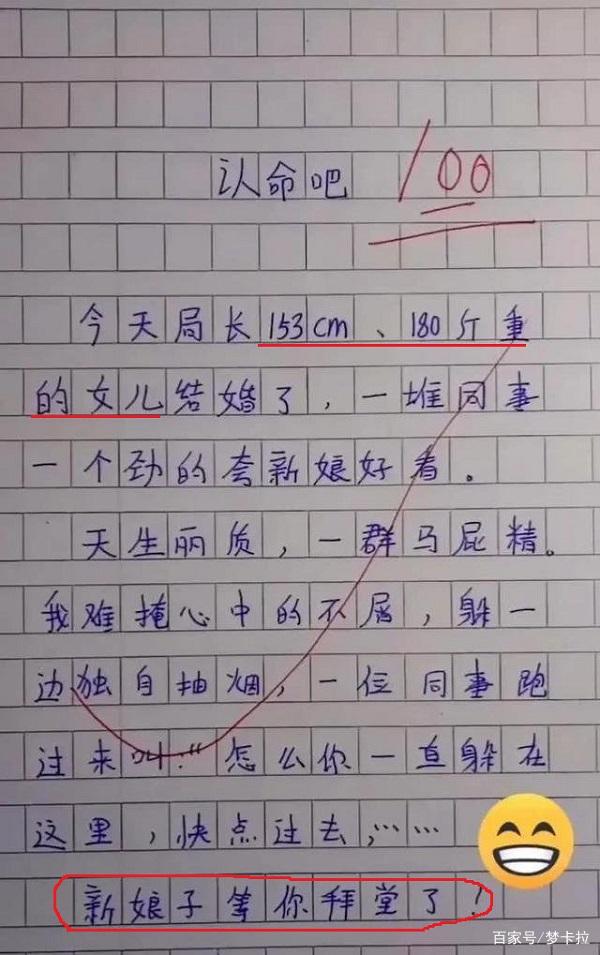 认命吧 100
今天局长153cm、180斤重
的女儿结婚了，一堆同事
一个劲的夸新娘好看。
天生丽质，一群马屁精。
我难掩心中的不屑，躲一
边独自抽烟，一位同事跑
过来叫："怎么你一直躲在
这里，快点过去，……
新娘子等你拜堂了！
百家号/梦卡拉